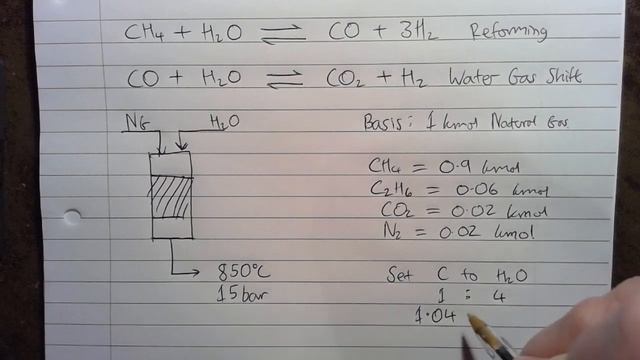 CH4 + H2O ⇌ CO + 3H2 Reforming
CO + H2O ⇌ CO2 + H2 Water Gas Shift
NG H2O
Basis: 1 kmol Natural Gas
CH4 = 0.9 kmol
C2H6 = 0.06 kmol
CO2 = 0.02 kmol
N2 = 0.02 kmol
850°C
15 bar
Set C to H2O
1 : 4
1.04